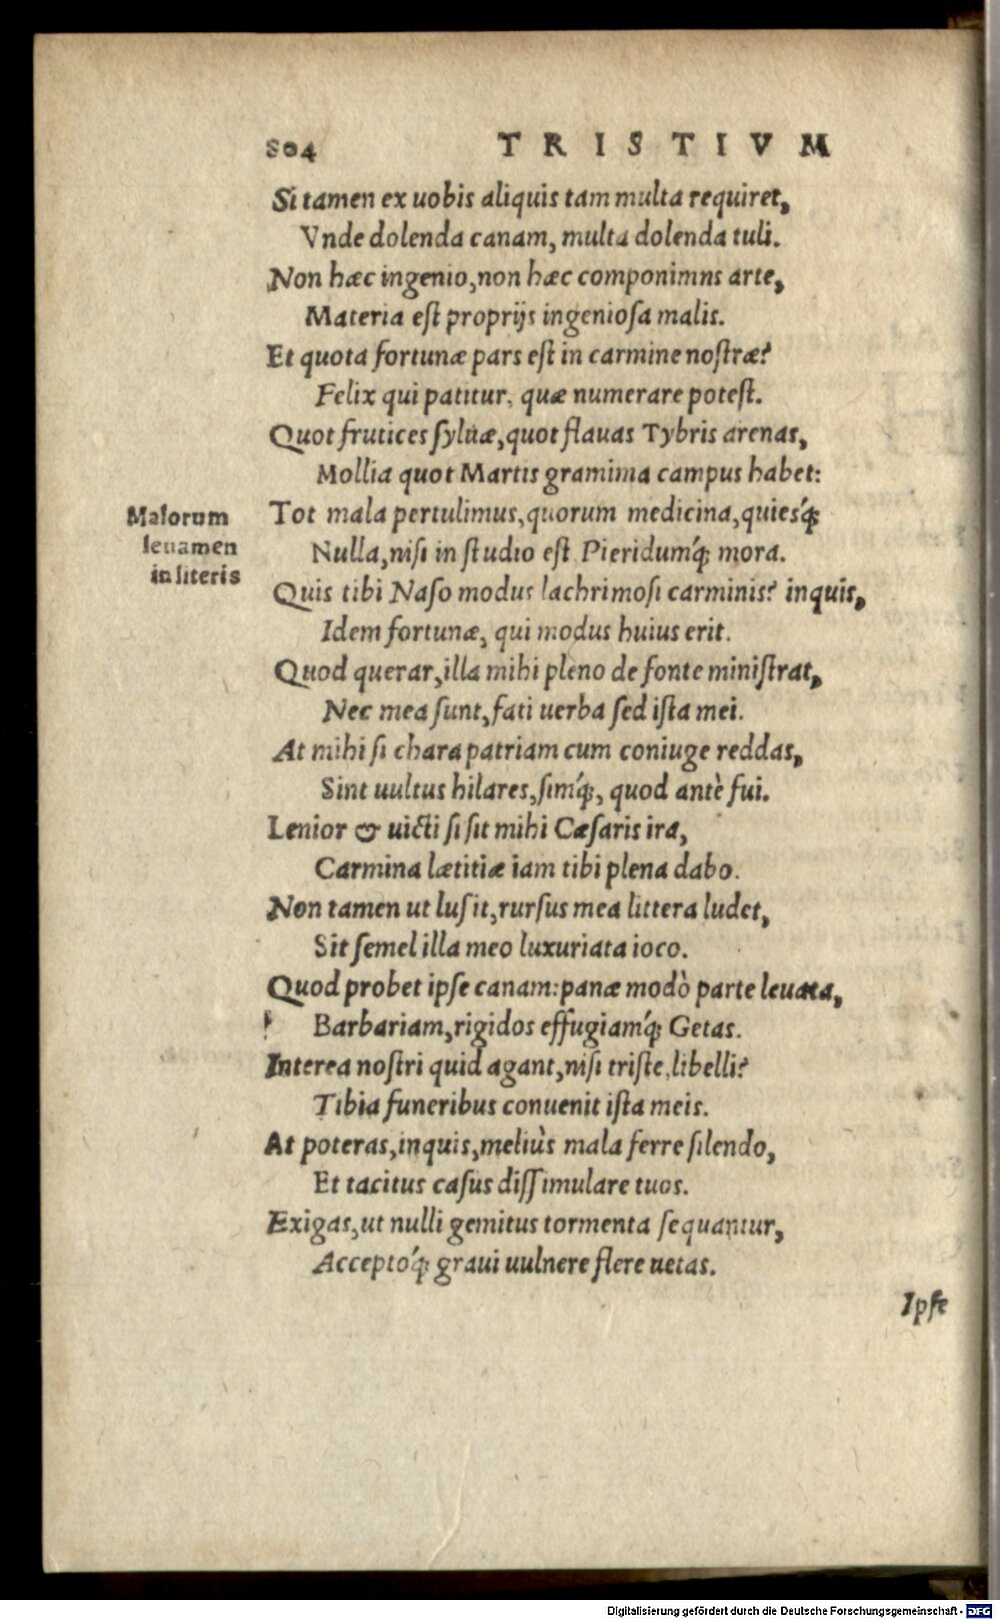 804 TRISTIVM
Si tamen ex uobis aliquis tam multa requiret,
Vnde dolenda canam, multa dolenda tuli.
Non hæc ingenio, non hæc componimns arte,
Materia eſt proprijs ingenioſa malis.
Et quota fortunæ pars eſt in carmine noſtræ?
Felix qui patitur, quæ numerare poteſt.
Quot frutices ſyluæ, quot flauas Tybris arenas,
Mollia quot Martis gramima campus habet:
Malorum leuamen in literis
Tot mala pertulimus, quorum medicina, quieśq;
Nulla, niſi in ſtudio eſt Pieridumq́; mora.
Quis tibi Naſo modus lachrimoſi carminis? inquis,
Idem fortunæ, qui modus huius erit.
Quod querar, illa mihi pleno de fonte miniſtrat,
Nec mea ſunt, fati uerba ſed iſta mei.
At mihi ſi chara patriam cum coniuge reddas,
Sint uultus hilares, ſimq́;, quod antè fui.
Lenior & uicti ſi ſit mihi Cæſaris ira,
Carmina lætitiæ iam tibi plena dabo.
Non tamen ut luſit, rurſus mea littera ludet,
Sit ſemel illa meo luxuriata ioco.
Quod probet ipſe canam: pœnæ modò parte leuata,
Barbariam, rigidos effugiamq́; Getas.
Interea noſtri quid agant, niſi triſte, libelli?
Tibia funeribus conuenit iſta meis.
At poteras, inquis, meliùs mala ferre ſilendo,
Et tacitus caſus diſſimulare tuos.
Exigas, ut nulli gemitus tormenta ſequantur,
Acceptoq́; graui uulnere flere uetas.
Ipſe
Digitalisierung gefördert durch die Deutsche Forschungsgemeinschaft - DFG